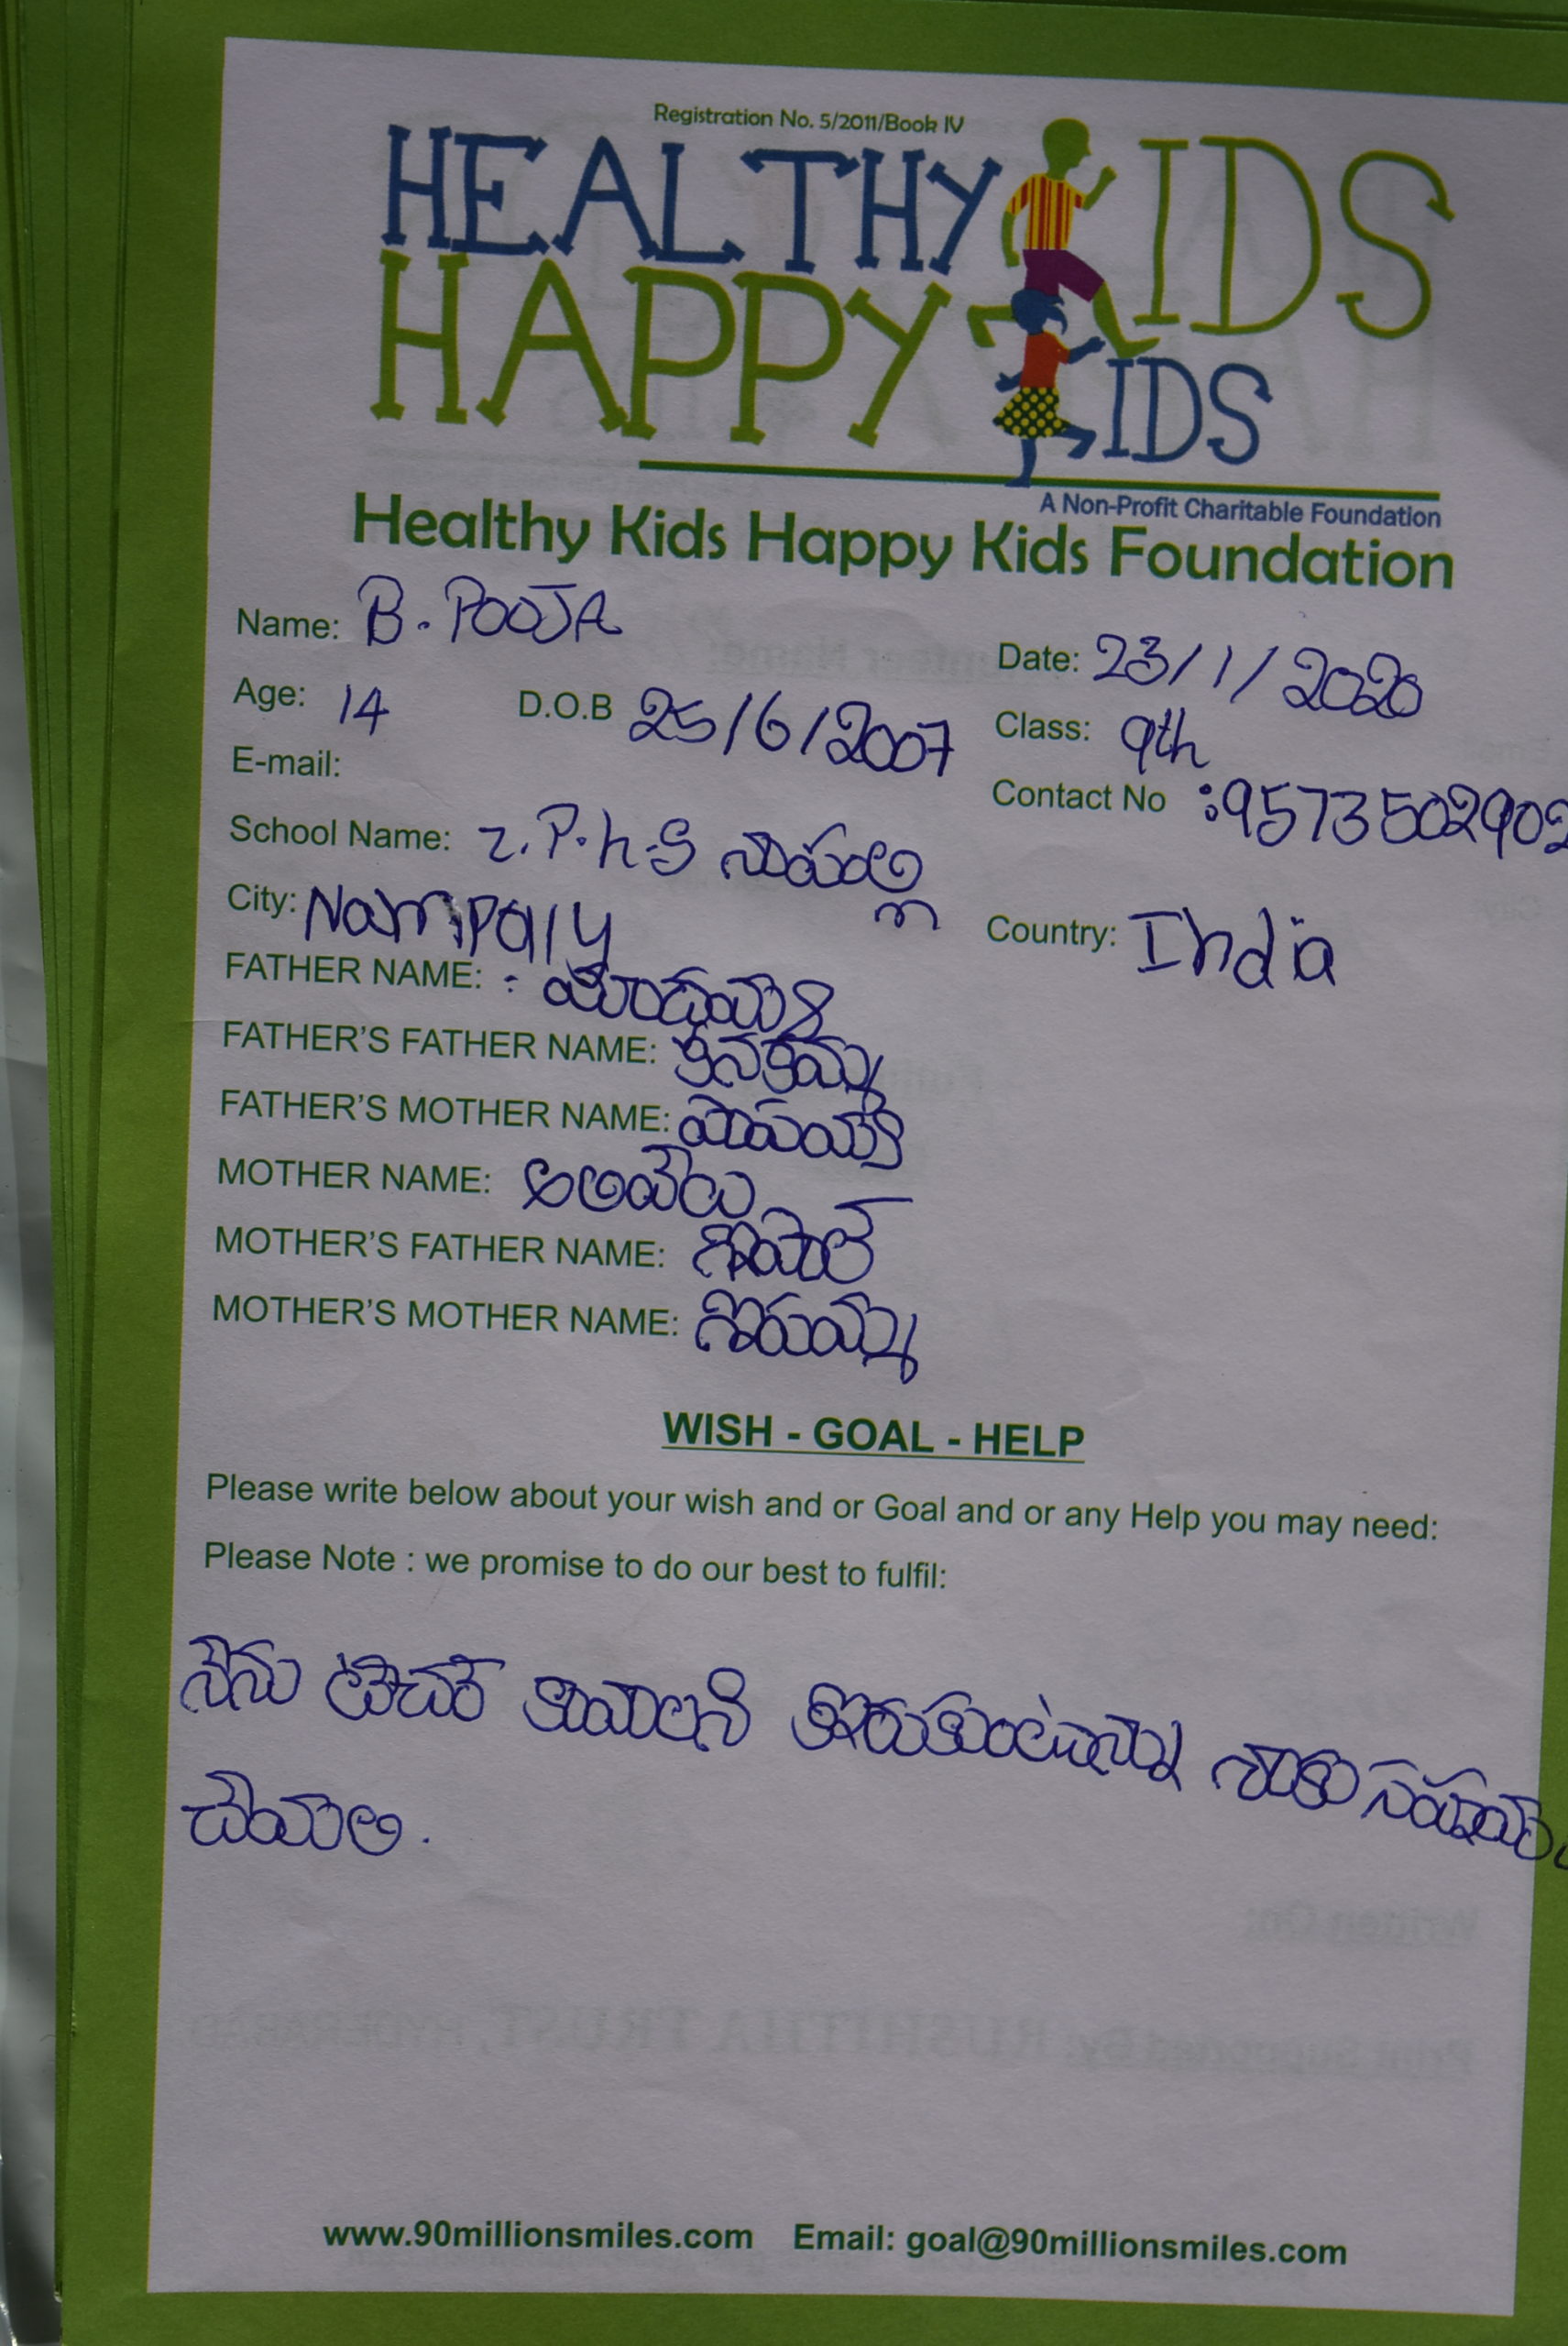 Registration No. 5/2011/Book IV
HEALTHY KIDS
HAPPY KIDS
A Non-Profit Charitable Foundation
Healthy Kids Happy Kids Foundation
Name: B. POOJA
Date: 23/1/2020
Age: 14 D.O.B 25/6/2007 Class: 9th
E-mail:
Contact No :9573502902
School Name: Z.P.h.S
City: Nampally Country: India
FATHER NAME: :
FATHER'S FATHER NAME:
FATHER'S MOTHER NAME:
MOTHER NAME:
MOTHER'S FATHER NAME: గోపాల్
MOTHER'S MOTHER NAME:
WISH - GOAL - HELP
Please write below about your wish and or Goal and or any Help you may need:
Please Note : we promise to do our best to fulfil:
నేను టీచర్ కావాలని కోరుకుంటున్నా నాకు సహాయం
చేయాలి.
www.90millionsmiles.com Email: goal@90millionsmiles.com